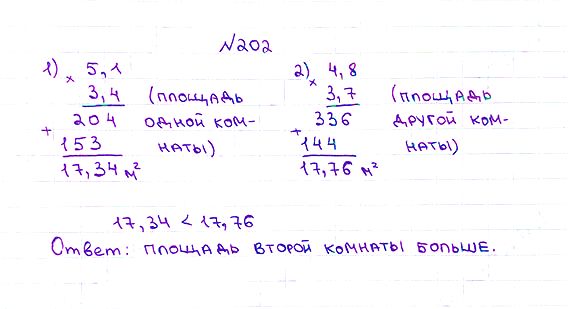 №202
1) × 5,1 2) × 4,8
3,4 (площадь 3,7 (площадь
+ 204 одной ком- + 336 другой ком-
153 наты) 144 наты)
17,34 м² 17,76 м²
17,34 < 17,76
Ответ: площадь второй комнаты больше.